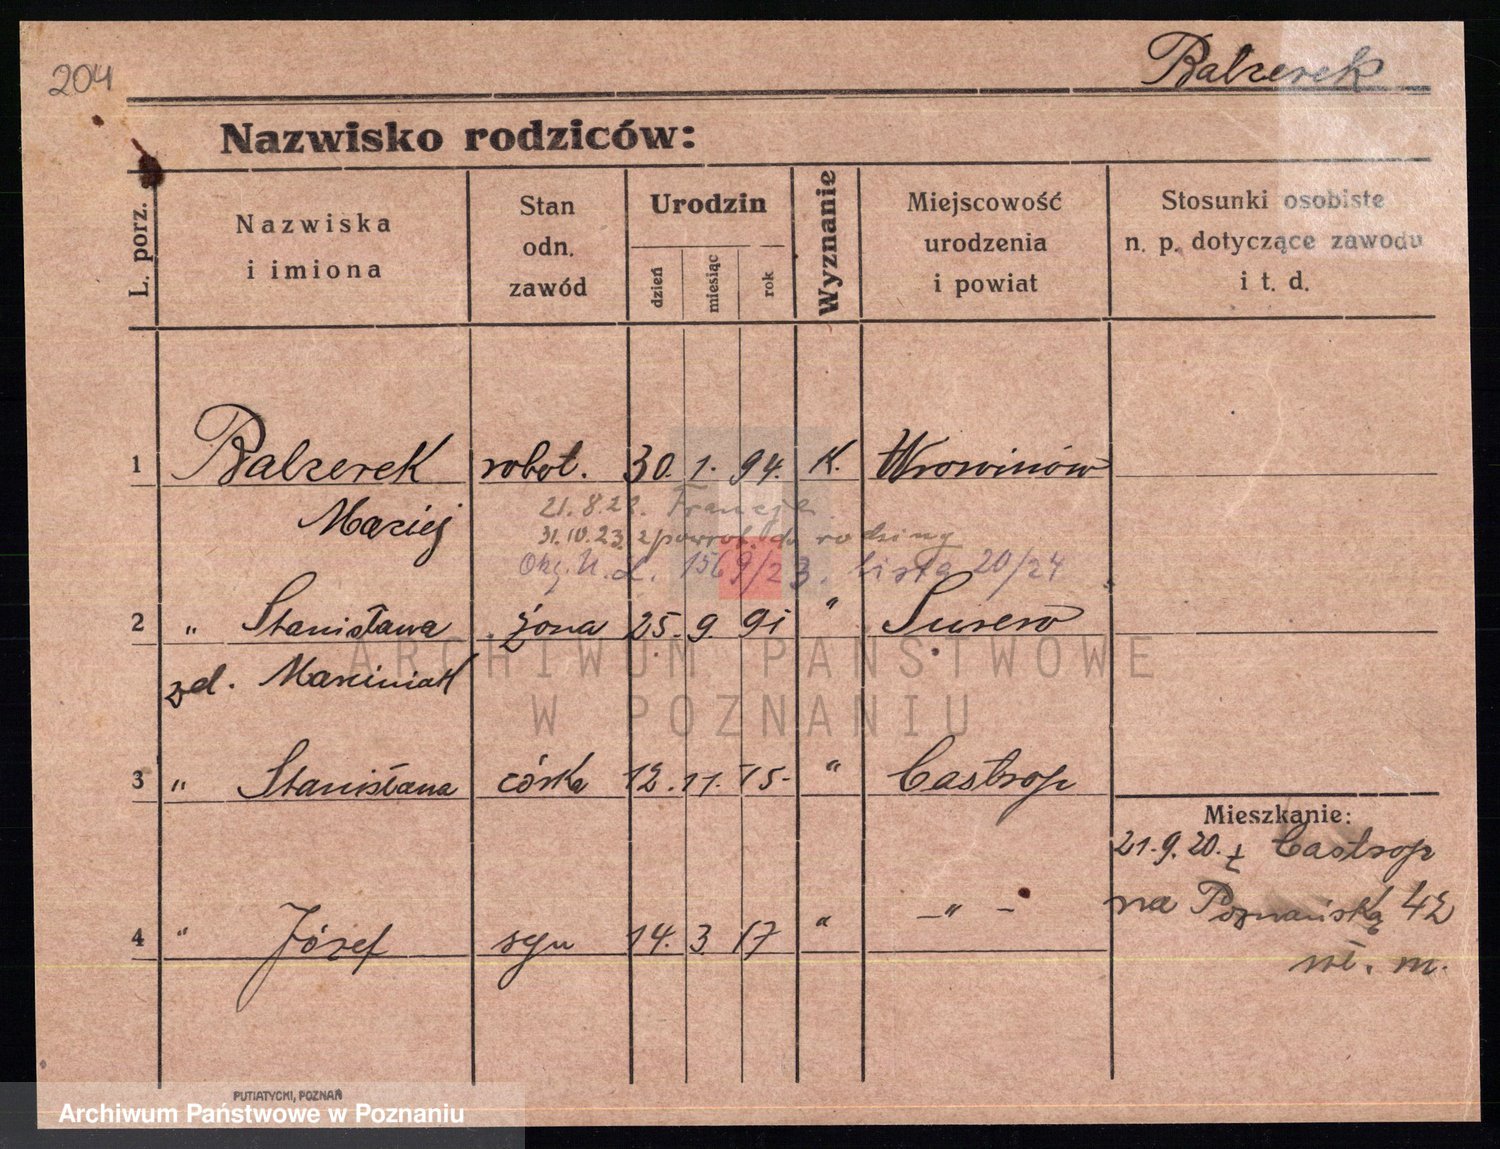 204
Balzerek
Nazwisko rodziców:
L. porz.
Nazwiska
i imiona
Stan
odn.
zawód
Urodzin
dzień
miesiąc
rok
Wyznanie
Miejscowość
urodzenia
i powiat
Stosunki osobiste
n. p. dotyczące zawodu
i t. d.
1 Balzerek robot. 30. 1. 94. K. Wrowinów
Maciej
21.8.22. Francja
31.10.23 z powrot. do rodziny
1569/23. lista 20/24
2 " Stanisława żona 25. 9. 91 "
zd. Marciniak
ARCHIWUM PAŃSTWOWE
W POZNANIU
3 " Stanisława córka 12. 11. 15. " Castrop
Mieszkanie:
21.9.20. z Castrop
na Poznańską 42
4 " Józef syn 14. 3 17 " – " –
w. m.
PUTIATYCKI, POZNAŃ
Archiwum Państwowe w Poznaniu